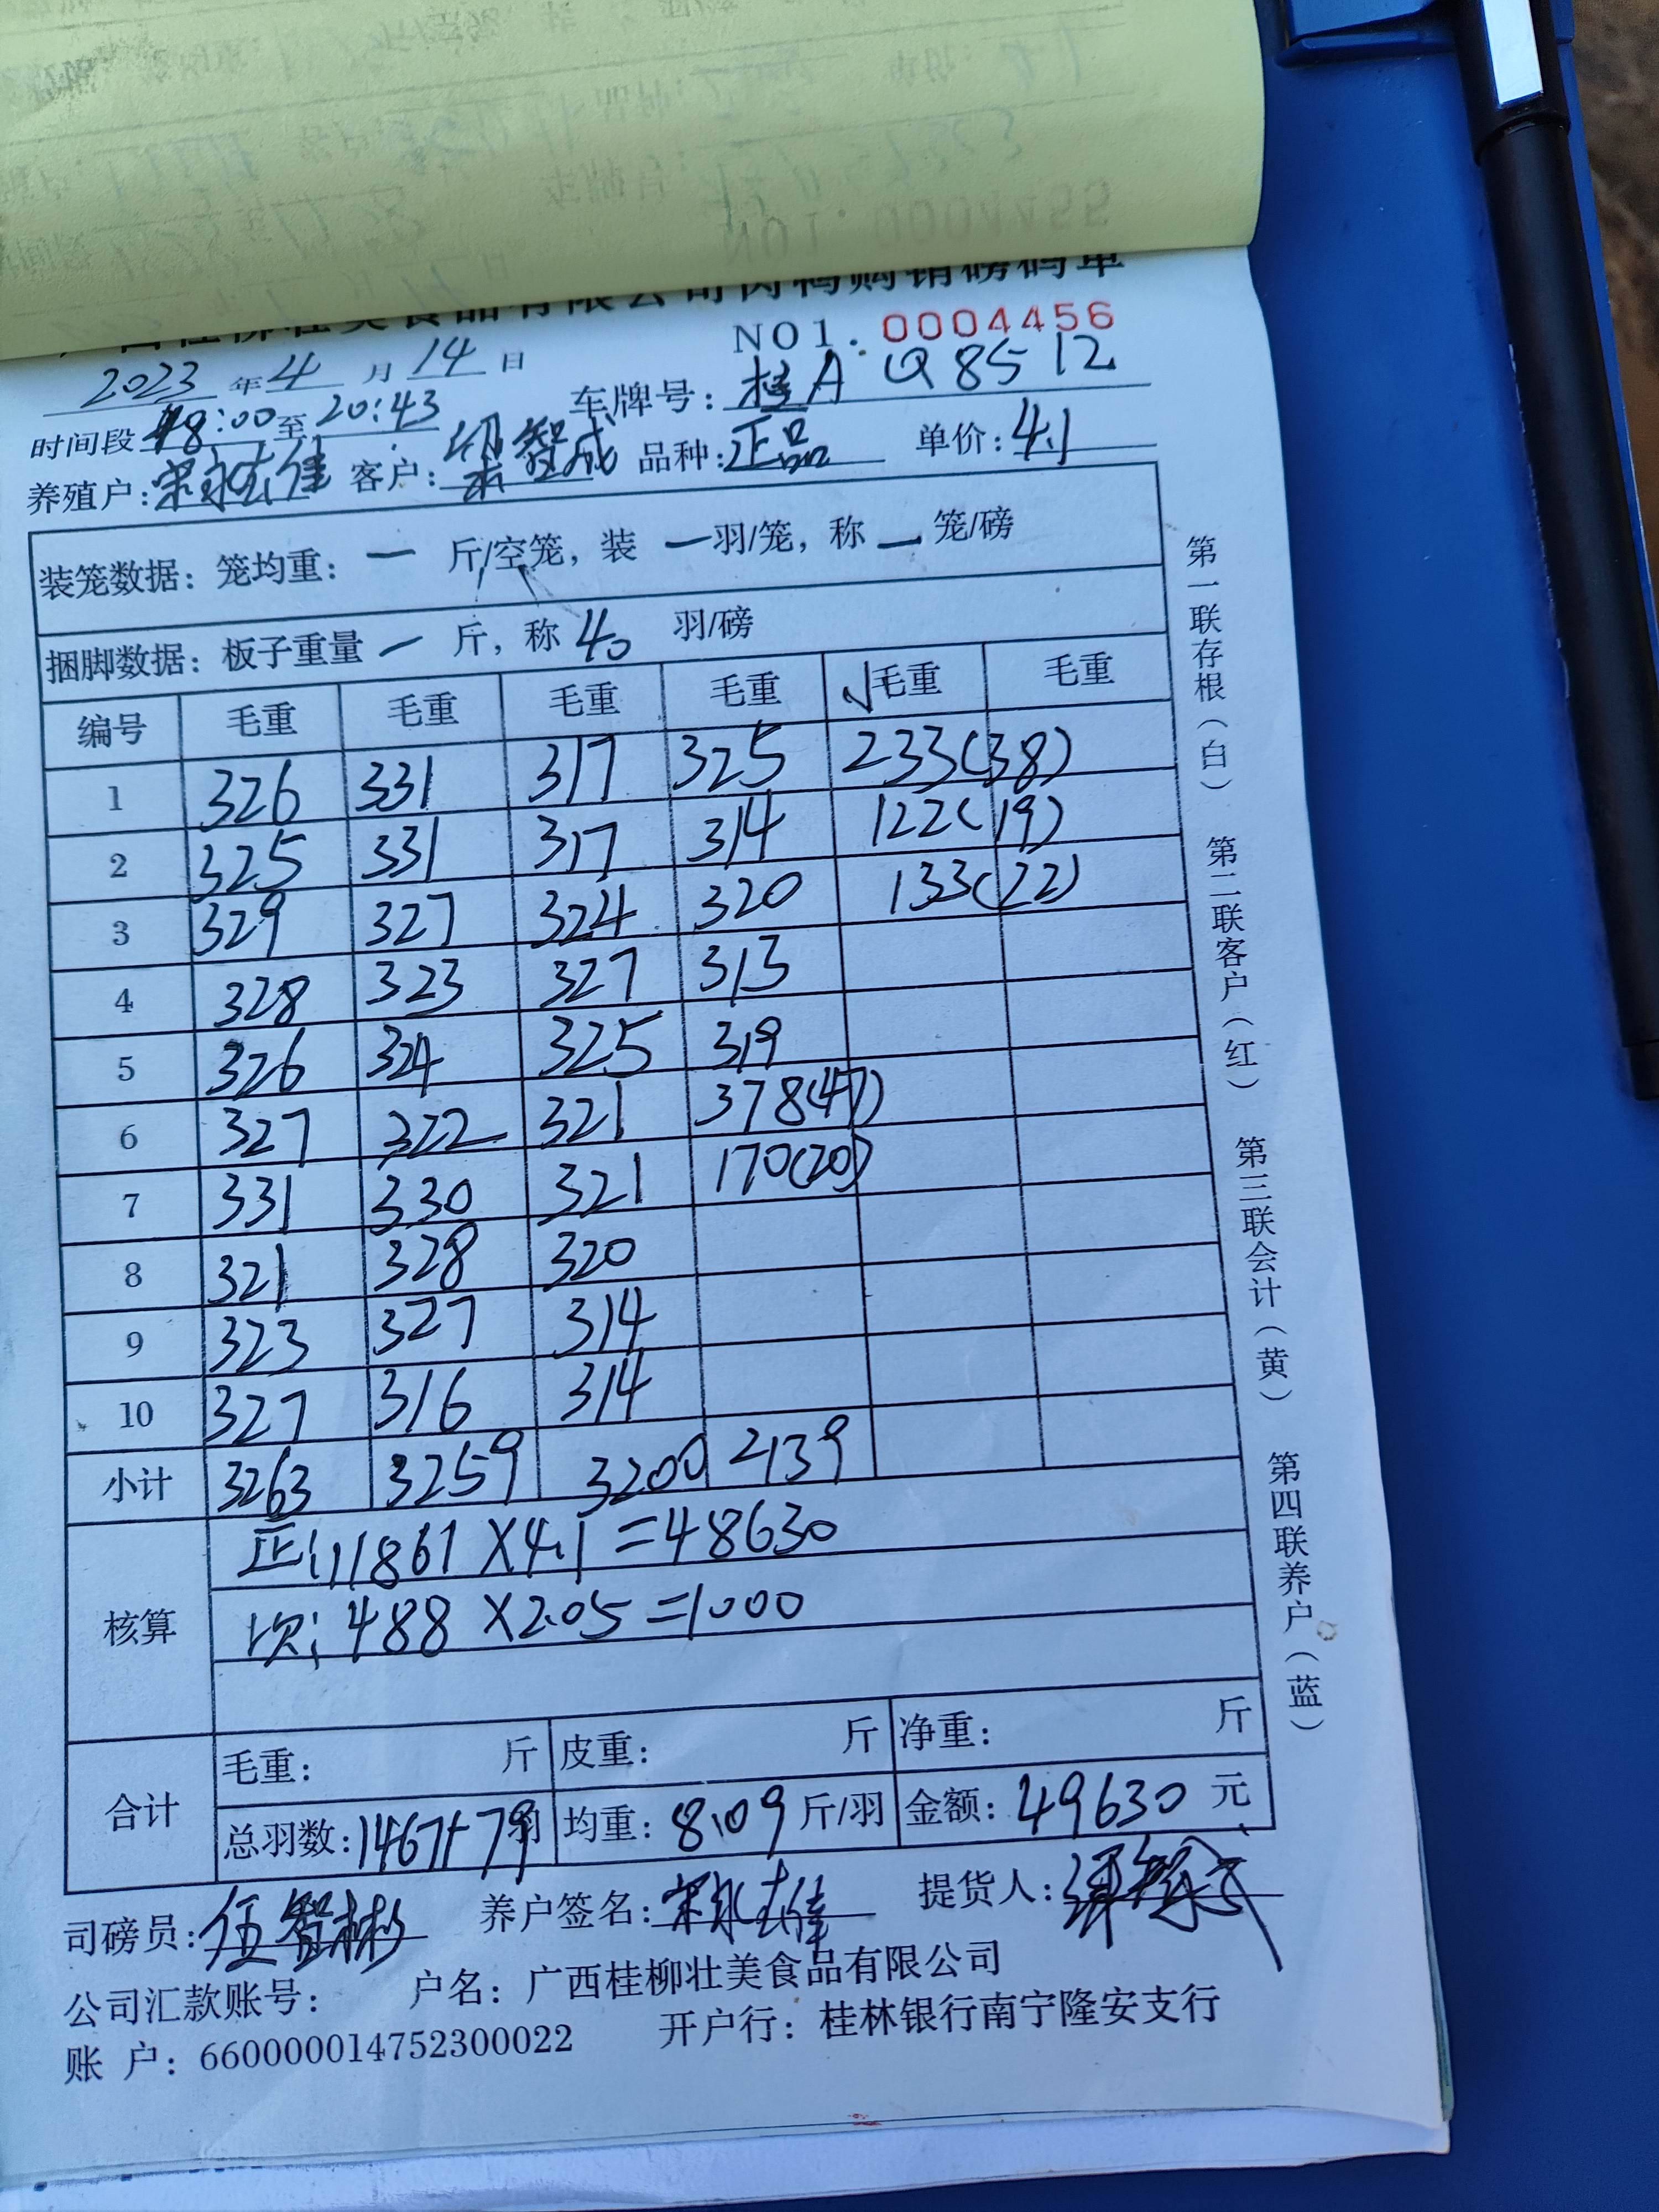 广西桂柳壮美食品有限公司肉鸭购销磅码单
NO1. 0004456
2023 年 4 月 14 日
时间段 18:00 至 20:43 车牌号: 桂A Q8512
养殖户: 宋永雄 客户: 智成 品种: 正品 单价: 4.1
装笼数据: 笼均重: 一 斤/空笼, 装 一 羽/笼, 称 一 笼/磅
捆脚数据: 板子重量 一 斤, 称 40 羽/磅
编号 毛重 毛重 毛重 毛重 √毛重 毛重
1 326 331 317 325 233(38)
2 325 331 317 314 122(19)
3 329 327 324 320 133(22)
4 328 323 327 313
5 326 324 325 319
6 327 322 321 378(47)
7 331 330 321 170(20)
8 321 328 320
9 323 327 314
10 327 316 314
小计 3263 3259 3200 2139
核算 正: 11861 X4.1=48630
次: 488 X2.05=1000
合计 毛重: 斤 皮重: 斤 净重: 斤
总羽数: 1467+79 羽 均重: 8.09 斤/羽 金额: 49630 元
司磅员: 伍智彬 养户签名: 宋永雄 提货人:
公司汇款账号: 户名: 广西桂柳壮美食品有限公司
账 户: 660000014752300022 开户行: 桂林银行南宁隆安支行
第一联存根(白) 第二联客户(红) 第三联会计(黄) 第四联养户(蓝)